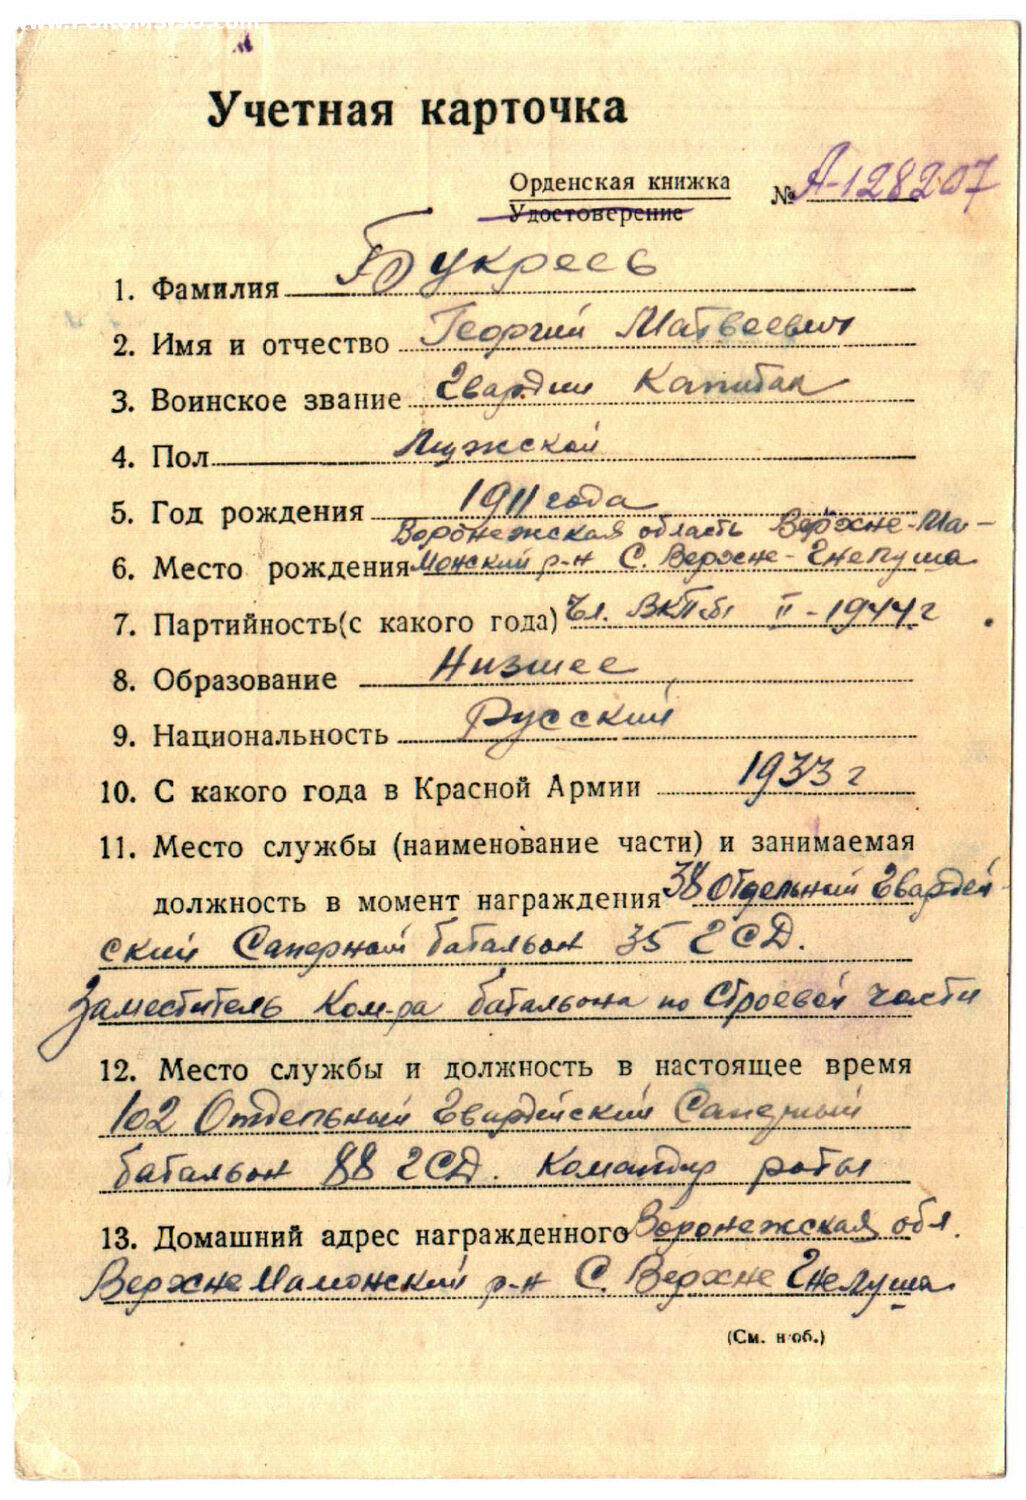 Учетная карточка
Орденская книжка
Удостоверение
№ А-128207
1. Фамилия Букреев
2. Имя и отчество Георгий Матвеевич
3. Воинское звание Гвардии Капитан
4. Пол Мужской
5. Год рождения 1911 года
Воронежская область Верхне-Ма-
6. Место рождения Монский р-н С. Верхне-Гнелуша
7. Партийность (с какого года) Чл. ВКПб II-1944 г
8. Образование Низшее
9. Национальность Русский
10. С какого года в Красной Армии 1933 г
11. Место службы (наименование части) и занимаемая
должность в момент награждения 38 Отдельный Гвардей-
ский Саперный батальон 35 ГСД.
Заместитель Ком-ра батальона по Строевой части
12. Место службы и должность в настоящее время
102 Отдельный Гвардейский Саперный
батальон 88 ГСД. Командир роты
13. Домашний адрес награжденного Воронежская обл.
ВерхнеМамонский р-н С. Верхне Гнелуша
(См. н об.)